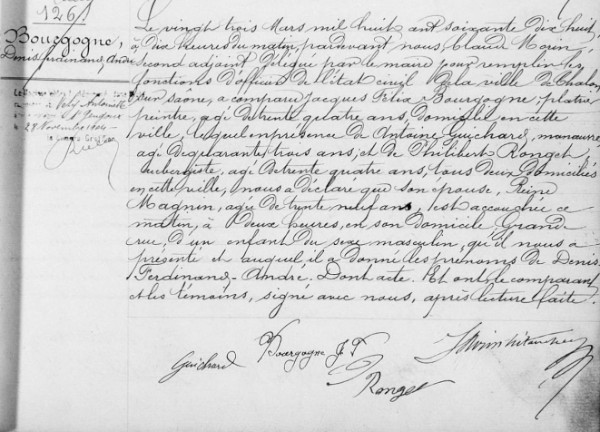 126
Bourgogne,
Denis Ferdinand André
Le vingt trois Mars mil huit cent soixante dix huit,
à dix heures du matin, pardevant nous, Claude Morin,
second adjoint Délégué par le maire pour remplir les
fonctions d'officier de l'état civil de la ville de Chalon
sur Saône, a comparu Jacques Felix Bourgogne, platrier
peintre, agé de trente quatre ans, Domicilié en cette
ville, lequel en présence de Antoine Guichard, manœuvre,
agé de quarante trois ans, et de Philibert Ronget
aubergiste, agé de trente quatre ans, tous deux Domiciliés
en cette ville, nous a déclaré que son épouse, Reine
Magnin, agée de trente neuf ans, est accouchée ce
matin, à deux heures, en son domicile, Grande
rue, d'un enfant du sexe masculin, qu'il nous a
présenté et auquel il a donné les prénoms de Denis
Ferdinand-André. Dont acte. Et ont le comparant
et les témoins, signé avec nous, après lecture faite.
29 Novembre
Guichard
Bourgogne J F
Ronget